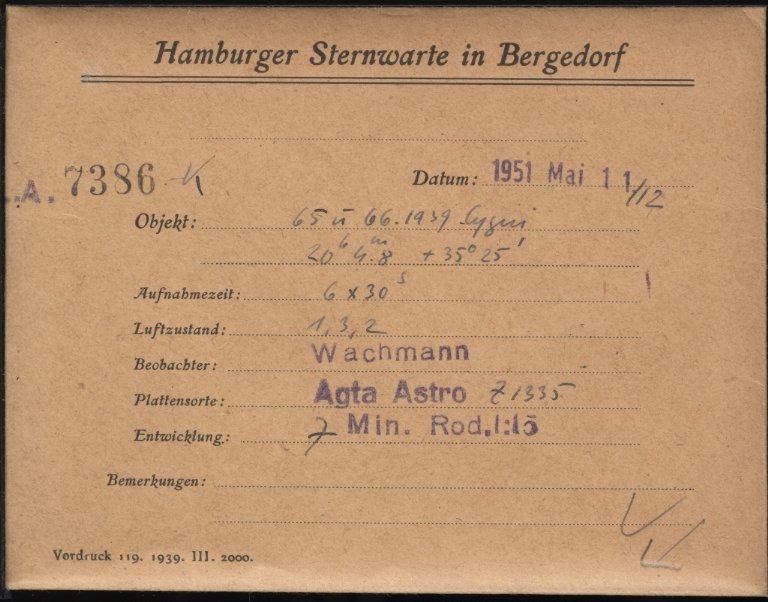 Hamburger Sternwarte in Bergedorf
A. 7386 K
Datum: 1951 Mai 11/12
Objekt: 65 ü 66.1939 Cygni
20ʰ 4.ᵐ8 +35°25'
Aufnahmezeit: 6 x 30ˢ
Luftzustand: 1,3,2
Beobachter: Wachmann
Plattensorte: Agfa Astro Z1335
Entwicklung: 7 Min. Rod.1:15
Bemerkungen:
Vordruck 119. 1939. III. 2000.